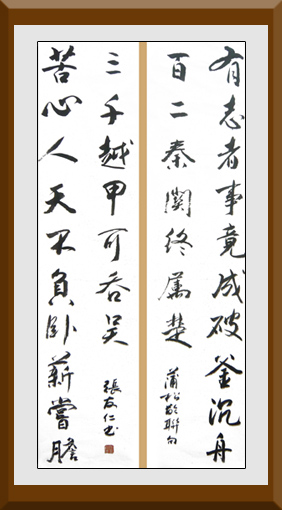 有志者事竟成破釜沉舟
百二秦關終屬楚
蒲松齡聯句
苦心人天不負卧薪嘗膽
三千越甲可吞吴
張友仁书